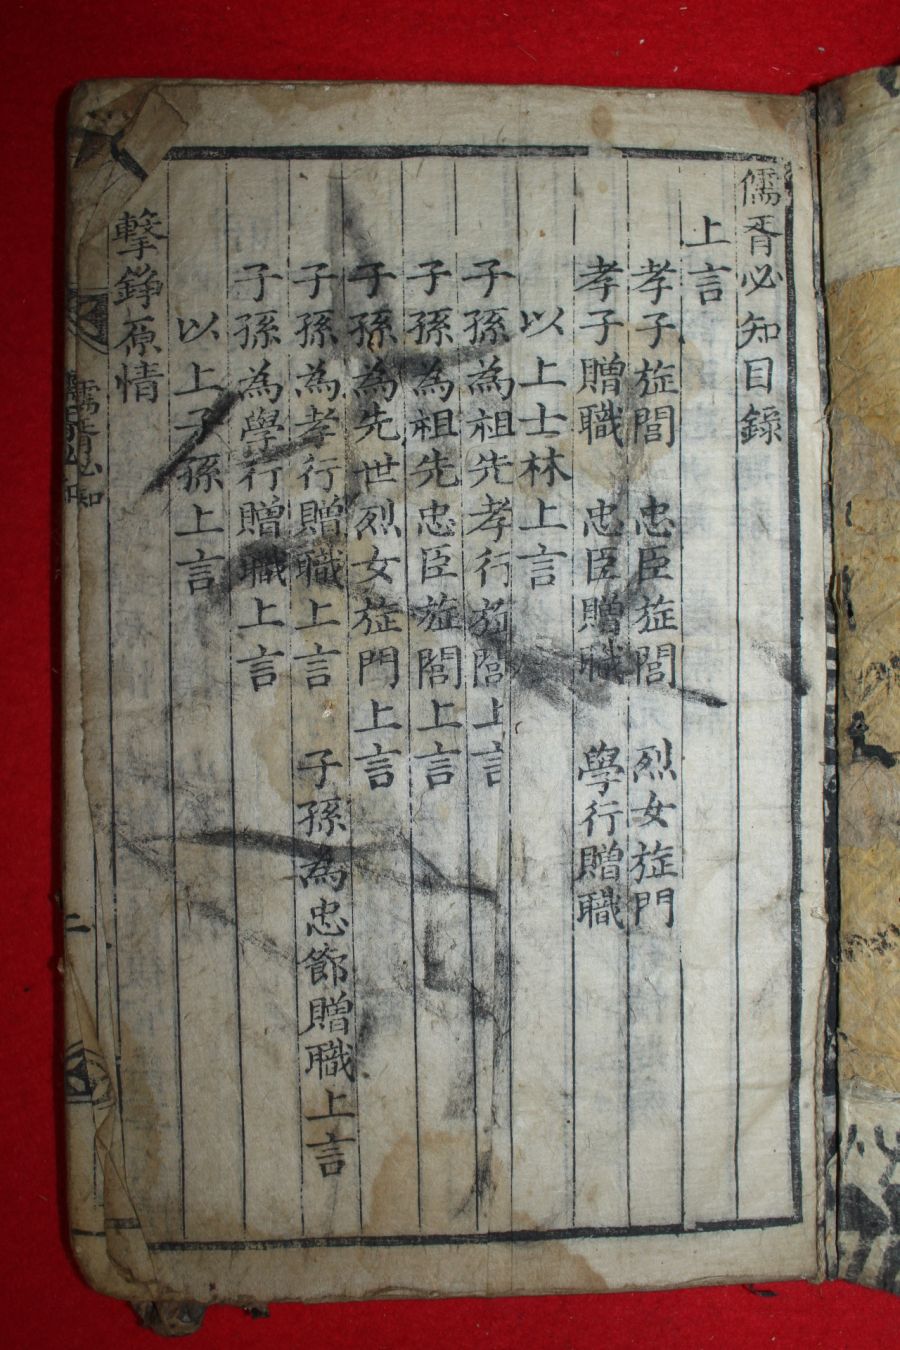 儒胥必知目錄
上言
孝子旌閭　忠臣旌閭　烈女旌門
孝子贈職　忠臣贈職　學行贈職
以上士林上言
子孫為祖先孝行旌閭上言
子孫為祖先忠臣旌閭上言
子孫為先世烈女旌門上言
子孫為孝行贈職上言　子孫為忠節贈職上言
子孫為學行贈職上言
以上子孫上言
擊錚原情
儒胥必知
二